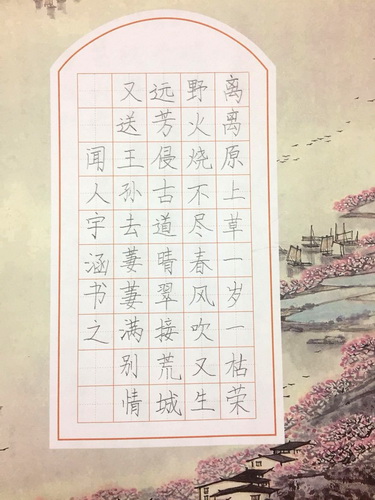 离离原上草一岁一枯荣
野火烧不尽春风吹又生
远芳侵古道晴翠接荒城
又送王孙去萋萋满别情
闻人宇涵书之